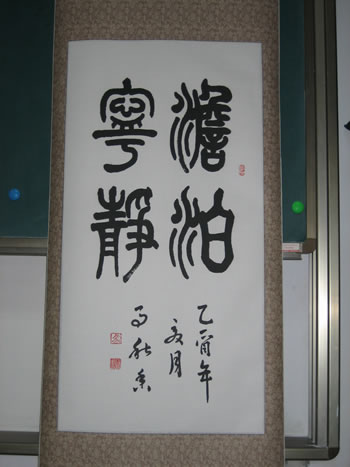 澹泊
寧靜
乙酉年
夏月